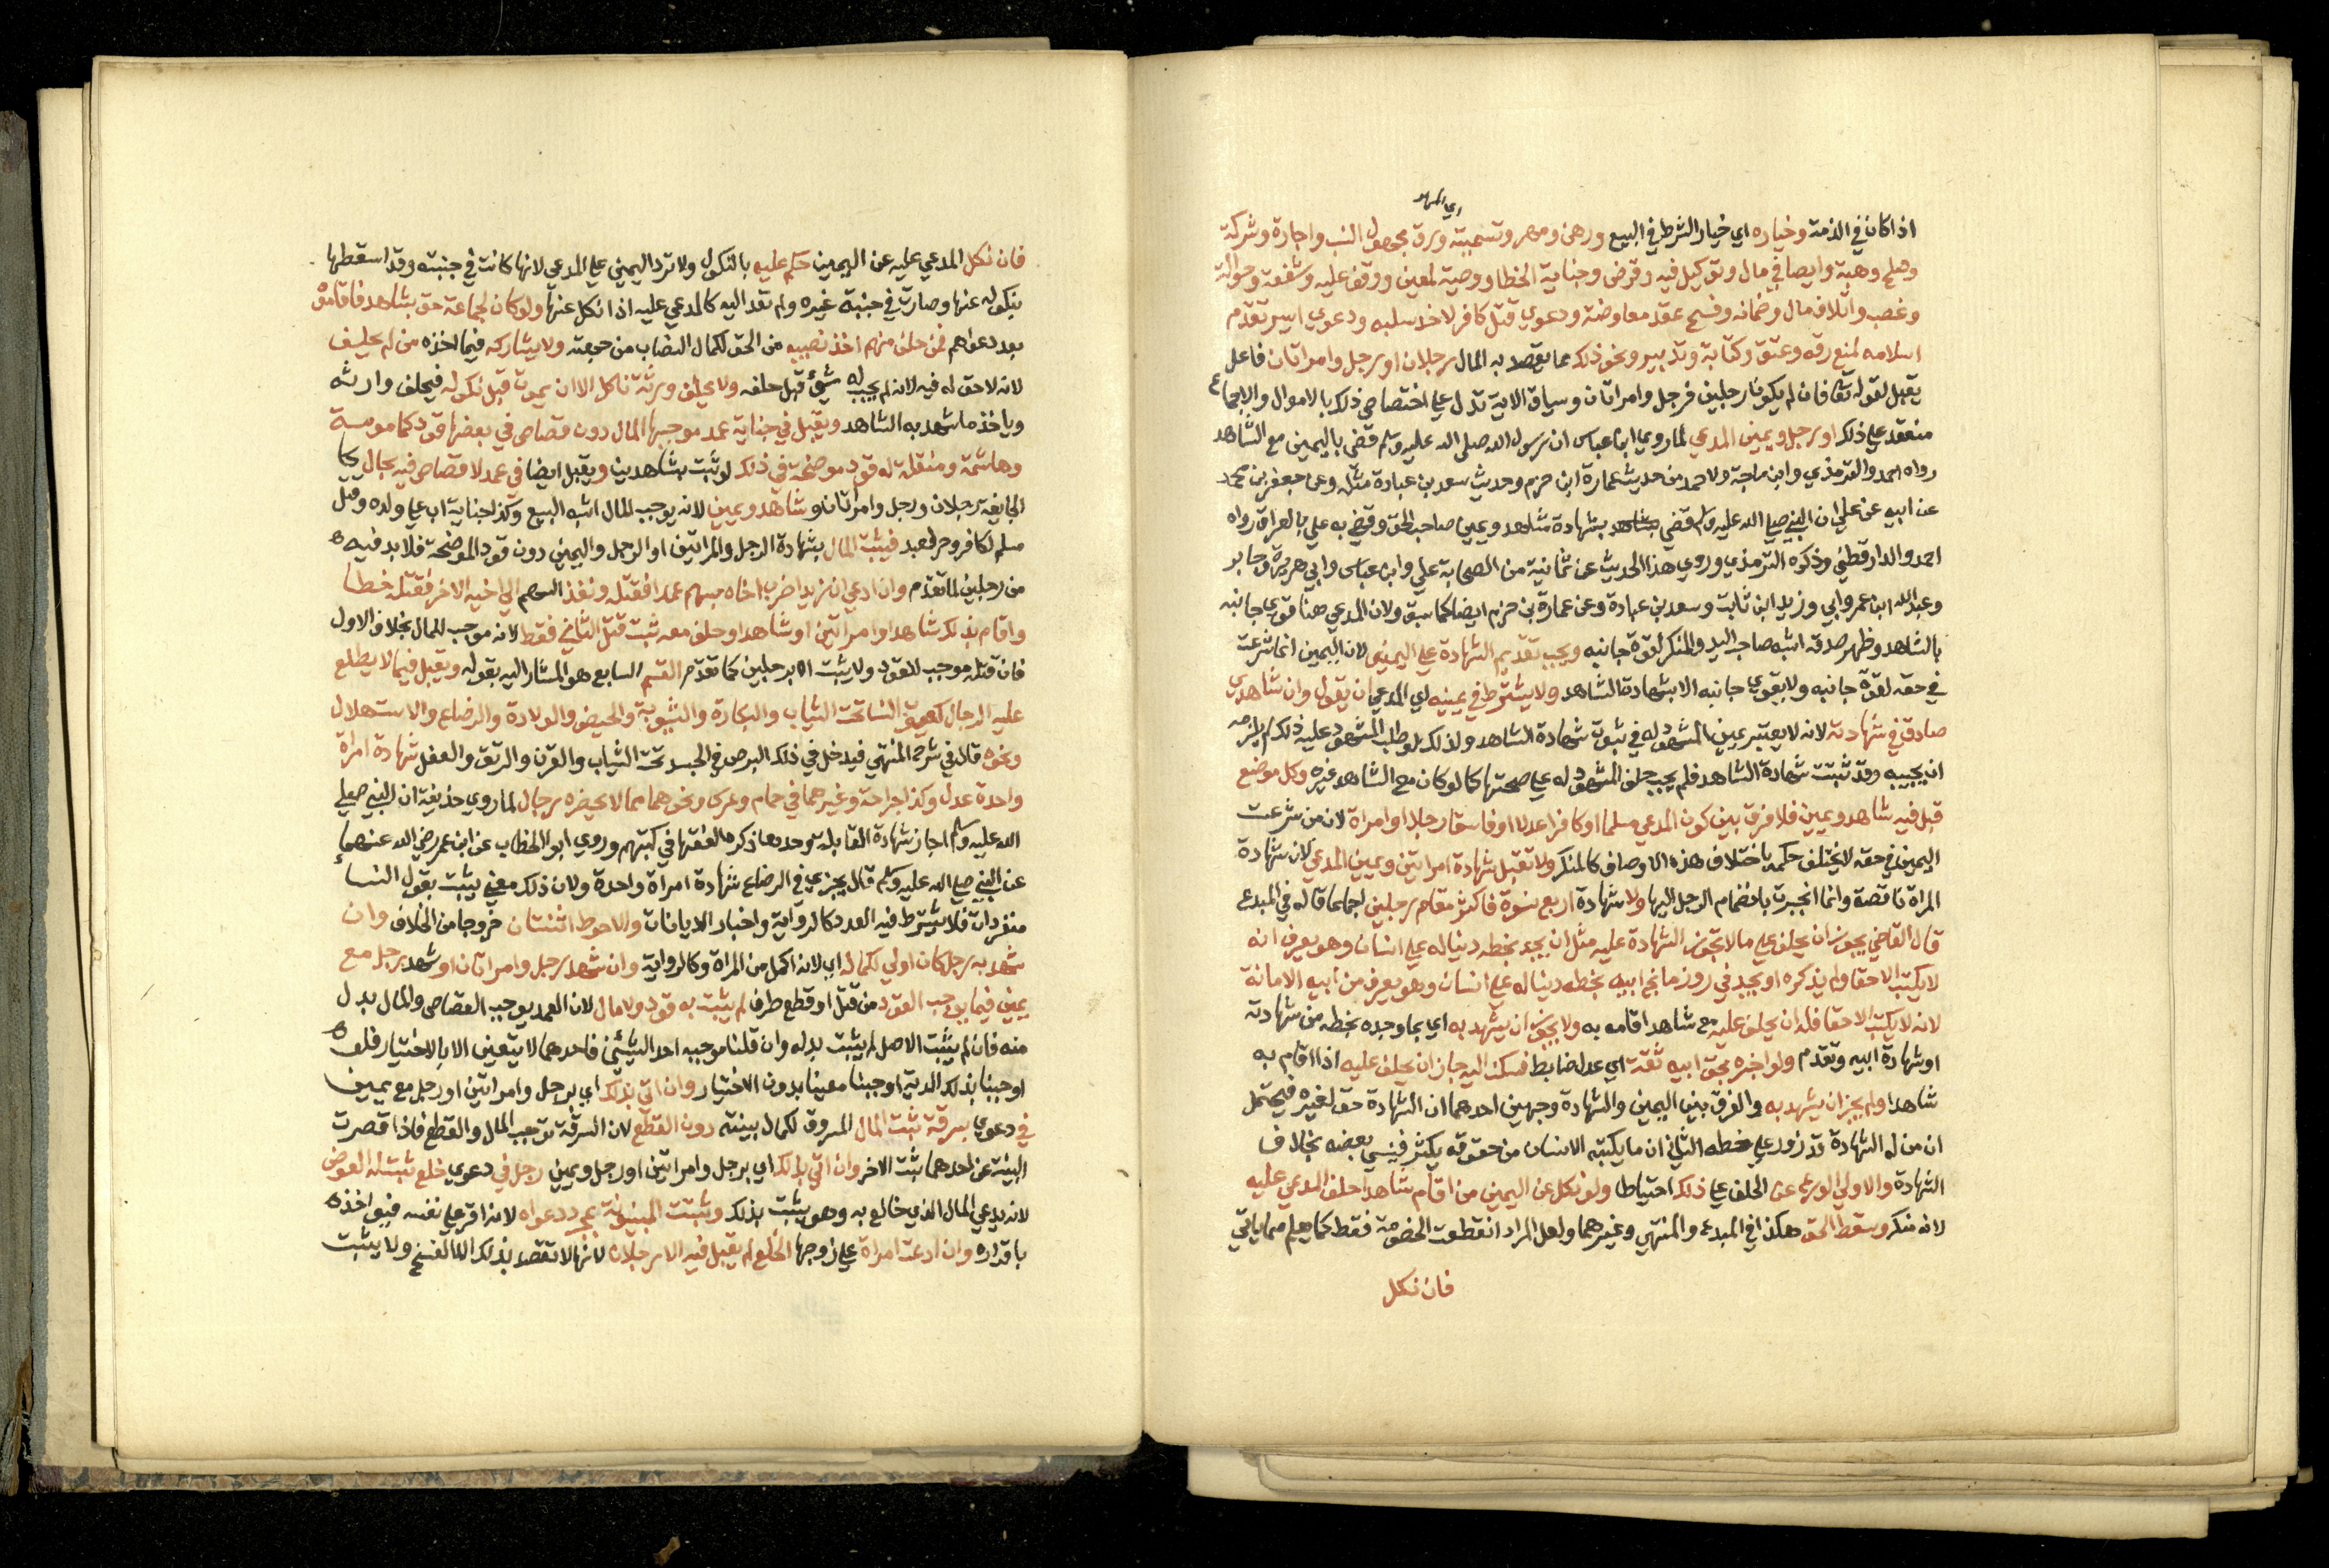 اي المهر
اذا كان في الذمة وخياره اي خيار الشرط في البيع ورهن ومهر وتسميته ورق مجهول النسب واجارة وشركة
وصلح وهبة وايصا في مال وتوكيل فيه وقرض وجناية الخطا ووصية لمعين ووقف عليه وشفعة وحوالة
وغصب واتلاف مال وضمانه وفسخ عقد معاوضة ودعوي قتل كافر لاخذ سلبه ودعوي اسير تقدم
اسلامه لمنع رقه وعتق وكتابة وتدبير ونحو ذلك مما يقصد به المال رجلان او رجل وامراتان فاعل
يقبل لقوله تعا فان لم يكونا رجلين فرجل وامراتان وسياق الاية تدل علي اختصاص ذلك بالاموال والاجماع
منعقد علي ذلك او رجل ويمين المدعي لما روي ابن عباس ان رسول الله صلي الله عليه وسلم قضي باليمين مع الشاهد
رواه احمد والترمذي وابن ماجة ولاحمد من حديث عمارة ابن حزم وحديث سعد بن عبادة مثله وعن جعفر بن محمد
عن ابيه عن علي ان النبي صلي الله عليه وسلم قضي بشهادة شاهد ويمين صاحب الحق وقضي به علي بالعراق رواه
احمد والدارقطني وذكره الترمذي وروي هذا الحديث عن ثمانية من الصحابة علي وابن عباس وابي هريرة وجابر
وعبد الله ابن عمر وابي وزيد ابن ثابت وسعد بن عبادة وعن عمارة بن حزم ايضا كما سبق ولان المدعي هنا قوي جانبه
بالشاهد وظهر صدقه اشبه صاحب اليد والمنكر لقوة جانبه ويجب تقديم الشهادة علي اليمين لان اليمين انما شرعت
في حقه لقوة جانبه ولا يقوي جانبه الا بشهادة الشاهد ولا يشترط في يمينه اي المدعي ان يقول وان شاهدي
صادق في شهادته لانه لا يعتبر يمين المشهود له في ثبوت شهادة الشاهد ولذلك لو طلب المشهود عليه ذلك لم يلزمه
ان يجيبه وقد ثبتت شهادة الشاهد فلم يجب حلف المشهود له علي صحتها كما لو كان مع الشاهد غيره وكل موضع
قبل فيه شاهد ويمين فلا فرق بين كون المدعي مسلما او كافرا عدلا او فاسقا رجلا او امراة لان من شرعت
اليمين في حقه لا يختلف حكمه باختلاف هذه الاوصاف كالمنكر ولا تقبل شهادة امراتين ويمين المدعي لان شهادة
المراة ناقصة وانما انجبرت بانضمام الرجل اليها ولا شهادة اربع نسوة فاكثر مقام رجلين اجماعا قاله في المبدع
قال القاضي يجوز ان يحلف علي ما لا تجوز الشهادة عليه مثل ان يجد بخطه دينا له علي انسان وهو يعرف انه
لا يكتب الا حقا ولم يذكره او يجد في روزمانج ابيه بخطه دينا له علي انسان وهو يعرف من ابيه الامانة
لانه لا يكتب الا حقا فله ان يحلف عليه مع شاهد اقامه به ولا يجوز ان يشهد به اي بما وجده بخطه من شهادته
او شهادة ابيه وتقدم ولو اخبره بحق ابيه ثقة اي عدل ضابط فسكن اليه جاز ان يحلف عليه اذا اقام به
شاهدا ولم يجز ان يشهد به والفرق بين اليمين والشهادة وجهين احدهما ان الشهادة حق لغيره فيحتمل
ان من له الشهادة قد زور علي خطه الثاني ان ما يكتبه الانسان من حقوقه يكثر فينسي بعضه بخلاف
الشهادة والاولي الورع عن الحلف علي ذلك احتياطا ولو نكل عن اليمين من اقام شاهدا حلف المدعي عليه
لانه منكر وسقط الحق هكذا في المبدع والمنتهي وغيرهما ولعل المراد انقطعت الخصومة فقط كما يعلم مما ياتي
فان نكل
فان نكل المدعي عليه عن اليمين حكم عليه بالنكول ولا ترد اليمين علي المدعي لانها كانت في جنبته وقد اسقطها
بنكوله عنها وصارت في جنبة غيره ولم تعد اليه كالمدعي عليه اذا نكل عنها ولو كان لجماعة حق بشاهد فاقاموه
بعد دعواهم فمن حلف منهم اخذ نصيبه من الحق لكمال النصاب من جهته ولا يشاركه فيما اخذه من لم يحلف
لانه لا حق له فيه لانه لم يجب له شيئ قبل حلفه ولا يحلف ورثة ناكل الا ان يموت قبل نكوله فيحلف وارثه
وياخذ ما شهد به الشاهد ويقبل في جناية عمد موجبها المال دون قصاص في بعضها قود كمامومة
وهاشمة ومنقلة له قود موضحة في ذلك لو ثبت بشاهدين ويقبل ايضا في عمد لا قصاص فيه بحال كا
الجايفة رجلان ورجل وامراتان وشاهد ويمين لانه يوجب المال اشبه البيع وكذا جناية اب علي ولده وقتل
مسلم لكافر وحر لعبد فيثبت المال بشهادة الرجل والمراتين او الرجل واليمين دون قود الموضحة فلا بد فيه
من رجلين لما تقدم وان ادعي ان زيدا ضرب اخاه بسهم عمدا فقتله ونفذ السهم الي اخيه الاخر فقتله خطا
واقام بذلك شاهدا وامراتين او شاهدا وحلف معه ثبت قتل الثاني فقط لانه موجب للمال بخلاف الاول
فان قتله موجب للقود ولا يثبت الا برجلين كما تقدم القسم السابع هو المشار اليه بقوله ويقبل فيما لا يطلع
عليه الرجال كعيوب النسا تحت الثياب والبكارة والثيوبة والحيض والولادة والرضاع والاستهلال
ونحوه قال في شرح المنتهي فيدخل في ذلك البرص في الجسد تحت الثياب والقرن والرتق والعفل شهادة امراة
واحدة عدل وكذا جراحة وغيرهما في حمام وعرس ونحوهما مما لا يحضره رجال لما روي حذيفة ان النبي صلي
الله عليه وسلم اجاز شهادة القابلة وحدها ذكره الفقها في كتبهم وروي ابو الخطاب عن ابن عمر رضي الله عنهما
عن النبي صلي الله عليه وسلم قال يجزي في الرضاع شهادة امراة واحدة ولان ذلك معني يثبت بقول النسا
منفردات فلا يشترط فيه العدد كالرواية واخبار الديانات والاحوط اثنتان خروجا من الخلاف وان
شهد به رجل كان اولي لكماله اي لانه اكمل من المراة وكالرواية وان شهد رجل وامراتان او شهد رجل مع
يمين فيما يوجب القود من قتل او قطع طرف لم يثبت به قود ولا مال لان العمد يوجب القصاص والمال بدل
منه فان لم يثبت الاصل لم يثبت بدله وان قلنا موجبه احد الشيئين فاحدهما لا يتعين الا بالاختيار فلو
اوجبنا بذلك الدية اوجبنا معينا بدون الاختيار وان اتي بذلك اي برجل وامراتين او رجل مع يمين
في دعوي سرقة ثبت المال المسروق لكمال بينته دون القطع لان السرقة توجب المال والقطع فاذا قصرت
البينة عن احدهما ثبت الاخر وان اتي بذلك اي برجل وامراتين او رجل ويمين رجل في دعوي خلع ثبت له العوض
لانه يدعي المال الذي خالع به وهو يثبت بذلك وتثبت البينونة بمجرد دعواه لانه اقر علي نفسه فيواخذه
باقراره وان ادعت امراة علي زوجها الخلع لم يقبل فيه الا رجلان لانها لا تقصد بذلك الا الفسخ ولا يثبت